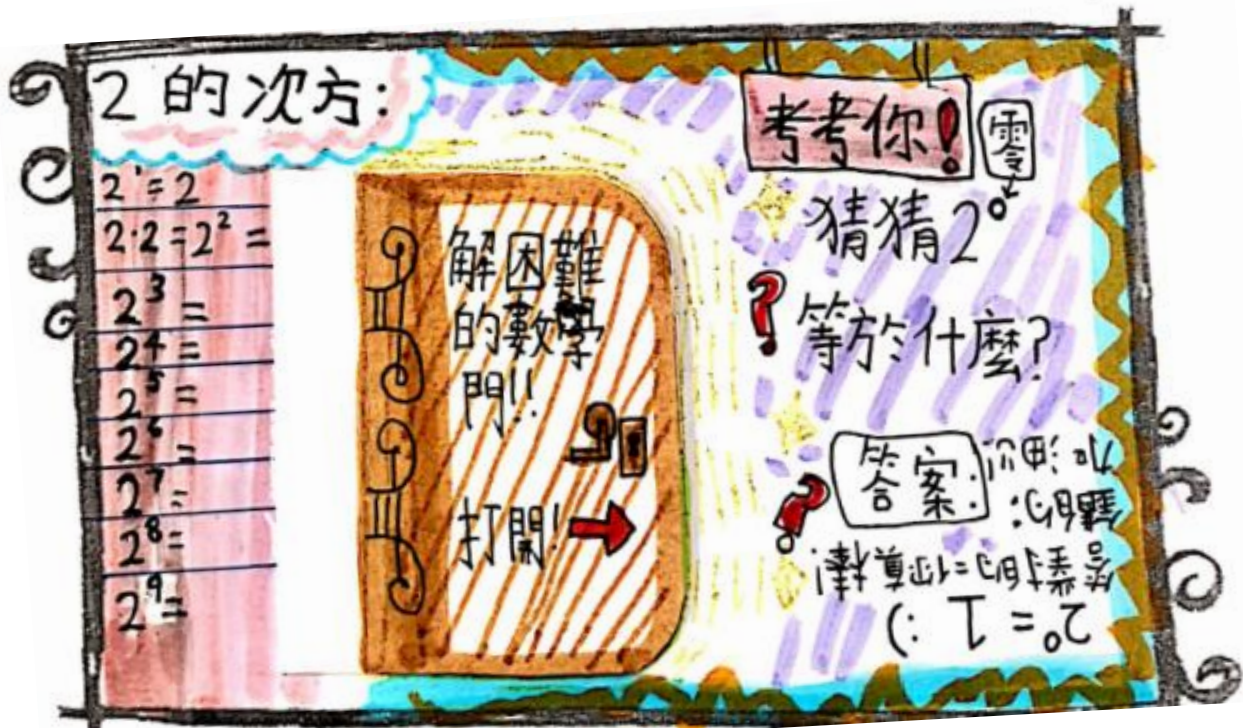 2 的次方:
2¹=2
2·2=2²=
2³=
2⁴=
2⁵=
2⁶=
2⁷=
2⁸=
2⁹=
解困難
的數學
門!!
打開!
考考你!
零
猜猜2⁰
等於什麼?
答案:
答案對的=你真棒!
錯的:
加油!!
2⁰=1 :)